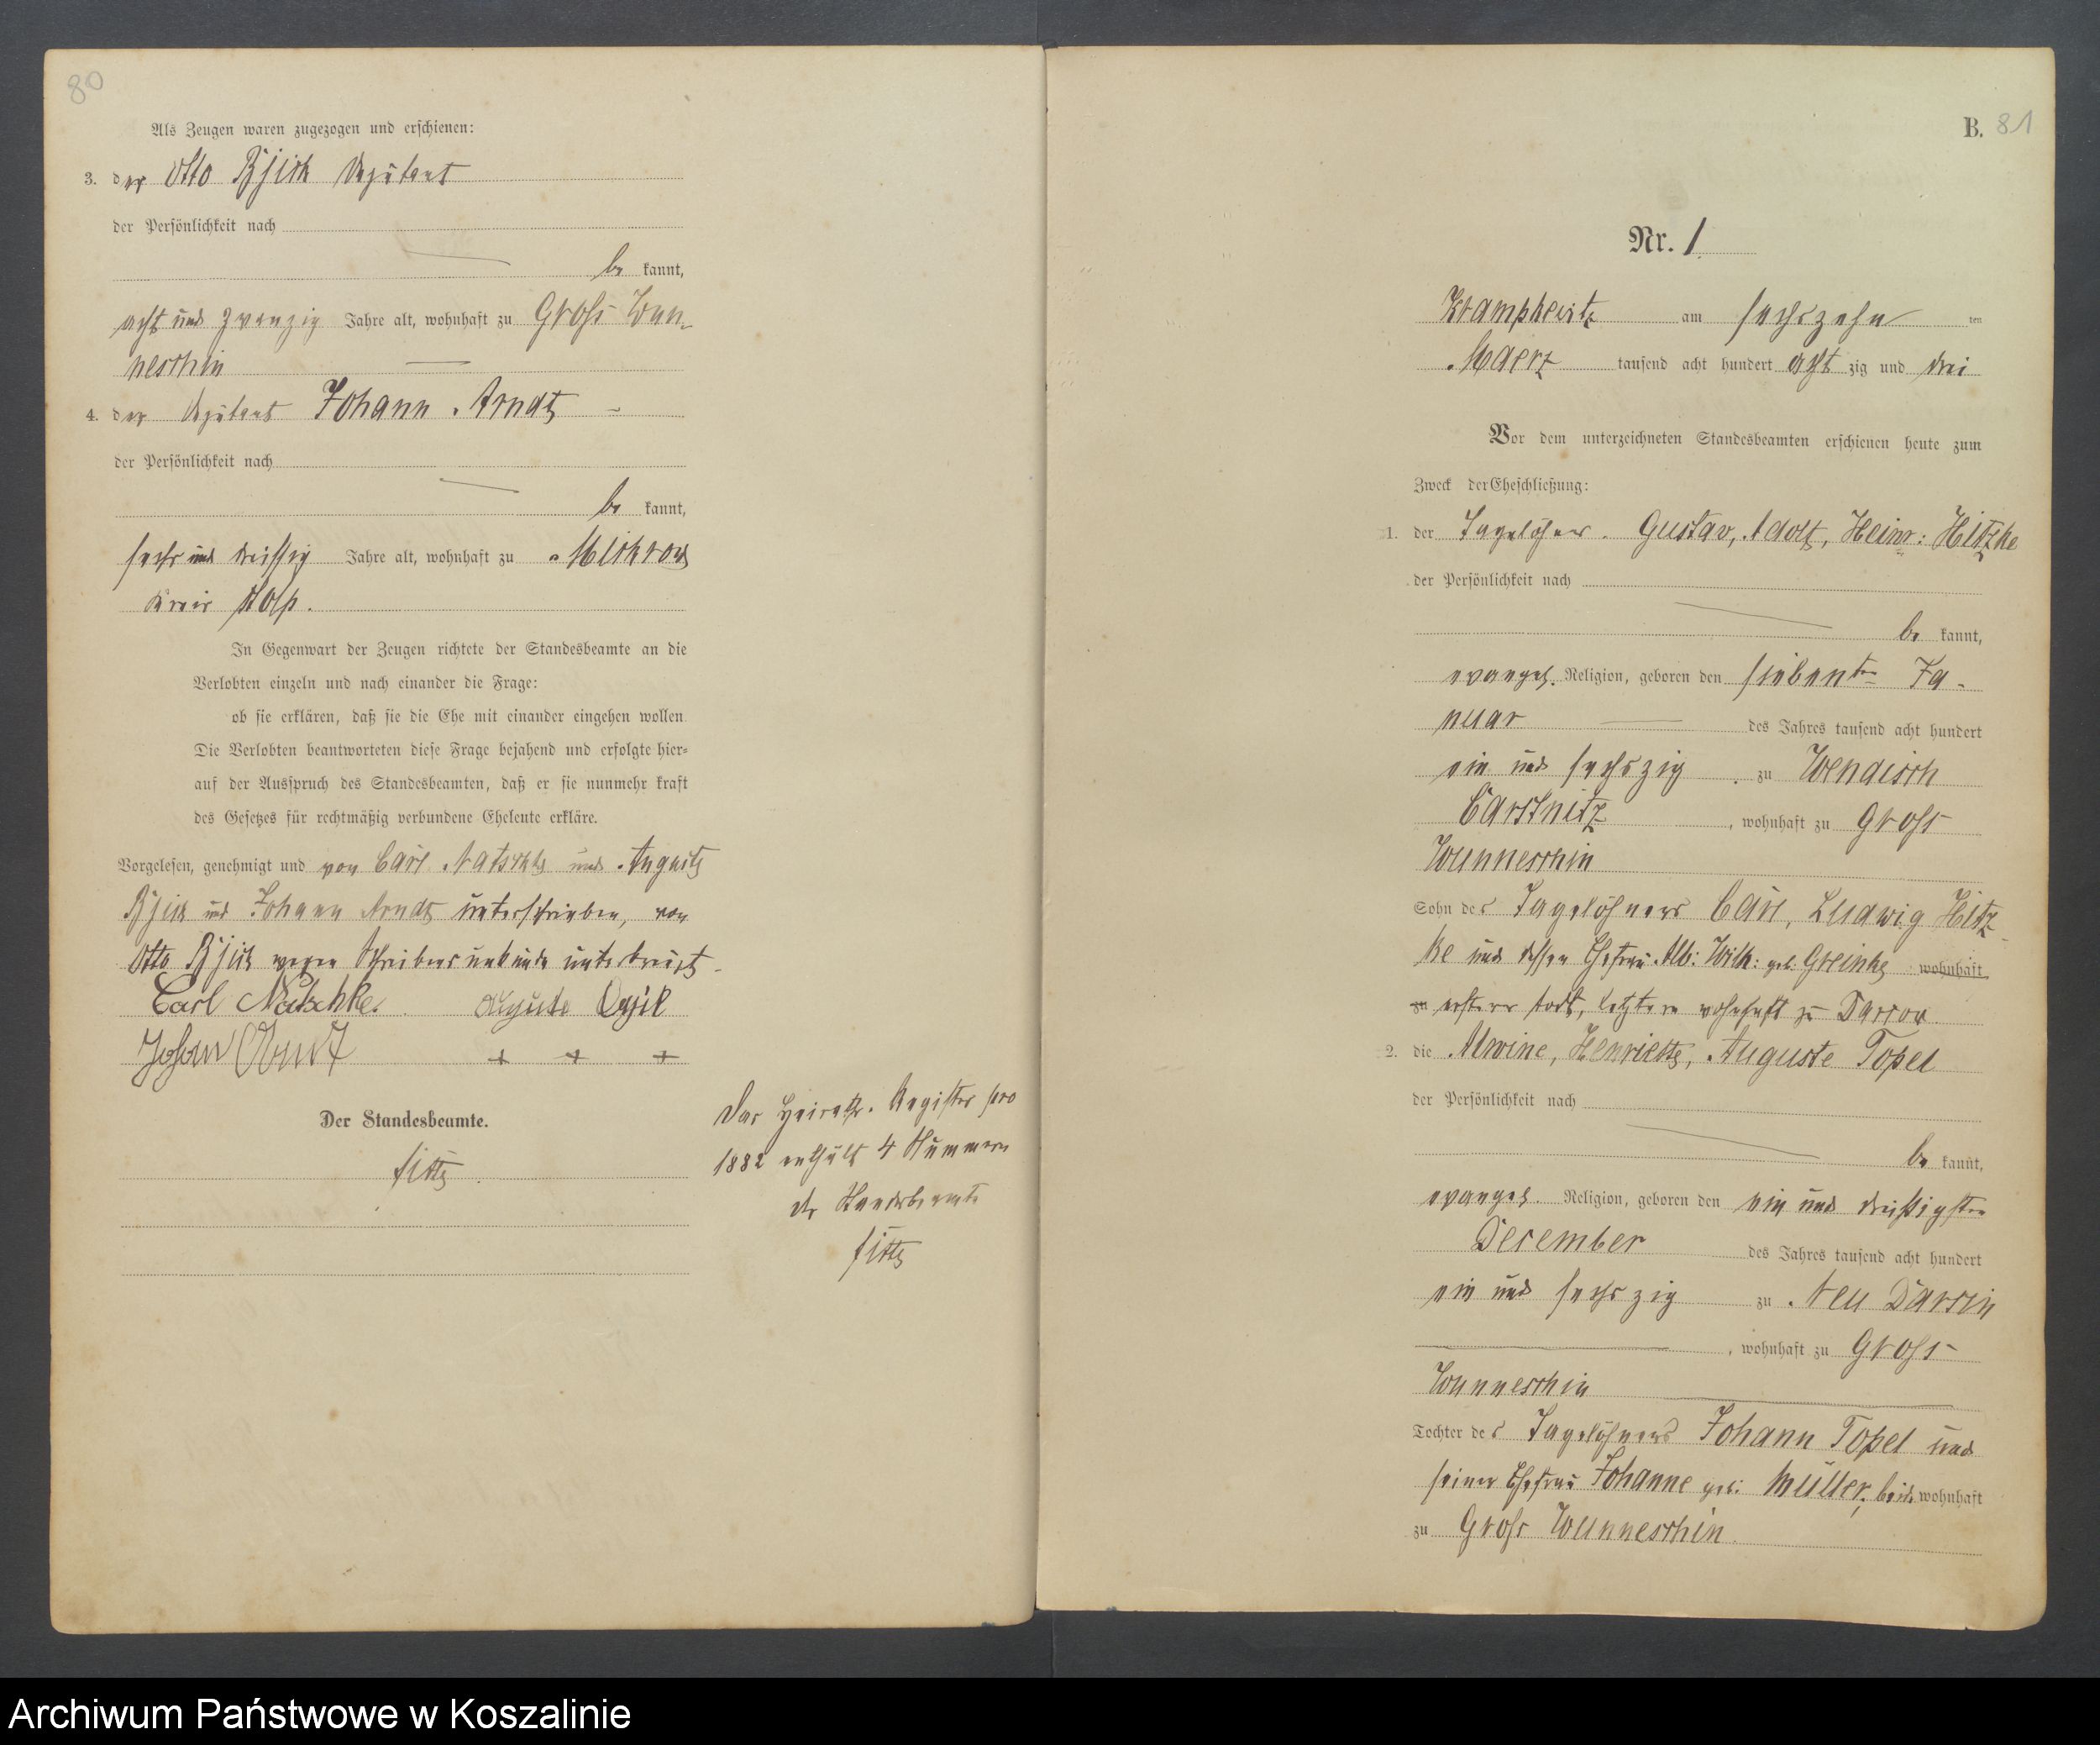 80
Als Zeugen waren zugezogen und erschienen:
3. der Otto Deputant
der Persönlichkeit nach
be kannt,
acht und zwanzig Jahre alt, wohnhaft zu Gross Wun-
neschin
4. der Deputant Johann Arndt
der Persönlichkeit nach
be kannt,
sechs und dreissig Jahre alt, wohnhaft zu Mickrow
Kreis Stolp.
In Gegenwart der Zeugen richtete der Standesbeamte an die
Verlobten einzeln und nach einander die Frage:
ob sie erklären, daß sie die Ehe mit einander eingehen wollen
Die Verlobten beantworteten diese Frage bejahend und erfolgte hier=
auf der Ausspruch des Standesbeamten, daß er sie nunmehr kraft
des Gesetzes für rechtmäßig verbundene Eheleute erkläre.
Vorgelesen, genehmigt und von Carl Natschke und Auguste
und Johann Arndt unterschrieben, von
Otto wegen Schreibensunkunde unterkreuzt.
Carl Natschke. Auguste
Johan Arndt + + +
Der Standesbeamte.
Das Heiraths-Register pro
1882 enthält 4 Nummern
der Standesbeamte
B. 81
Nr. 1
Krampkewitz am sechszehn ten
Maerz tausend acht hundert acht zig und drei
Vor dem unterzeichneten Standesbeamten erschienen heute zum
Zweck der Eheschließung:
1. der Tagelöhner Gustav, Adolf, Heinr: Hitzke
der Persönlichkeit nach
be kannt,
evangel. Religion, geboren den siebenten Ja-
nuar des Jahres tausend acht hundert
ein und sechszig zu Wendisch
Carstnitz, wohnhaft zu Gross
Wunneschin
Sohn des Tagelöhners Carl, Ludwig Hitz-
ke und dessen Ehefrau Alb: Wilh: geb: Greinke wohnhaft
zu ersterer todt, letztere wohnhaft zu Darrow
2. die Alwine, Henriette, Auguste Topel
der Persönlichkeit nach
be kannt,
evangel. Religion, geboren den ein und dreißigsten
December des Jahres tausend acht hundert
ein und sechszig zu Neu Darsin
, wohnhaft zu Gross
Wunneschin
Tochter des Tagelöhners Johann Topel und
seiner Ehefrau Johanne geb: Müller, beide wohnhaft
zu Gross Wunneschin.
Archiwum Państwowe w Koszalinie